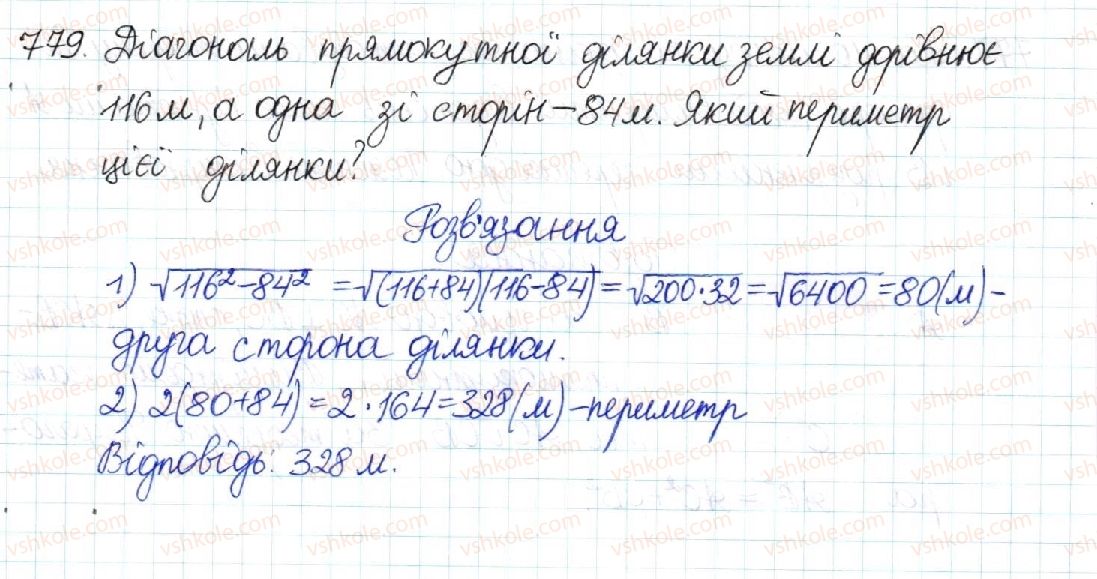 779. Діагональ прямокутної ділянки землі дорівнює
116 м, а одна зі сторін – 84 м. Який периметр
цієї ділянки?
Розв'язання
1) √116² – 84² = √(116+84)(116–84) = √200·32 = √6400 = 80 (м) –
друга сторона ділянки.
2) 2(80+84) = 2·164 = 328 (м) – периметр
Відповідь: 328 м.